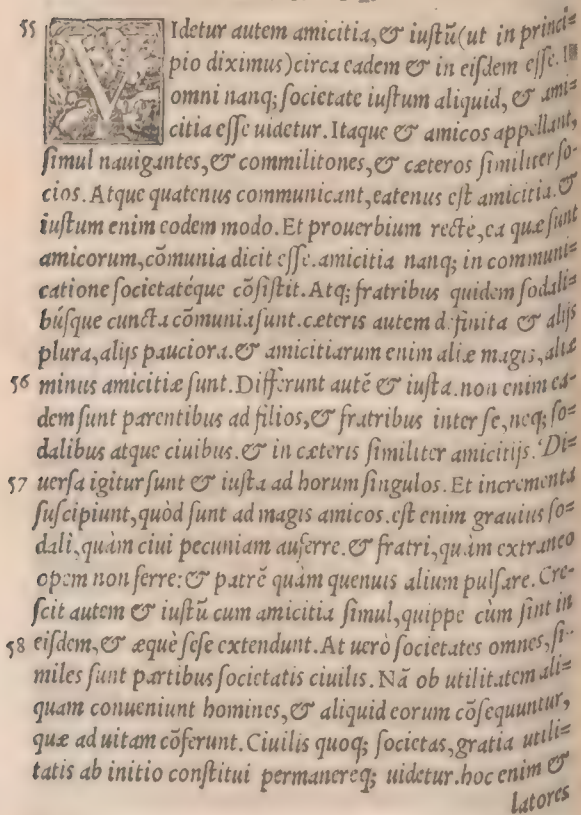 55 VIdetur autem amicitia, & iustū (ut in princi=
pio diximus) circa eadem & in eisdem esse. In
omni nanq; societate iustum aliquid, & ami=
citia esse uidetur. Itaque & amicos appellant,
simul nauigantes, & commilitones, & cæteros similiter so-
cios. Atque quatenus communicant, eatenus est amicitia. &
iustum enim eodem modo. Et prouerbium recte, ea quæ sunt
amicorum, cōmunia dicit esse. amicitia nanq; in communi=
catione societatéque cōsistit. Atq; fratribus quidem sodali=
búsque cuncta cōmunia sunt. cæteris autem definita & alijs
plura, alijs pauciora. & amicitiarum enim aliæ magis, aliæ
56 minus amicitiæ sunt. Differunt autē & iusta. non enim ea-
dem sunt parentibus ad filios, & fratribus inter se, neq; so=
dalibus atque ciuibus. & in cæteris similiter amicitijs. Di=
57 uersa igitur sunt & iusta ad horum singulos. Et incrementa
suscipiunt, quòd sunt ad magis amicos. est enim grauius so=
dali, quàm ciui pecuniam auferre. & fratri, quàm extraneo
opem non ferre: & patrē quàm quenuis alium pulsare. Cre-
scit autem & iustū cum amicitia simul, quippe cùm sint in
58 eisdem, & æquè sese extendunt. At uerò societates omnes, si-
miles sunt partibus societatis ciuilis. Nā ob utilitatem ali=
quam conueniunt homines, & aliquid eorum cōsequuntur,
quæ ad uitam cōferunt. Ciuilis quoq; societas, gratia utili=
tatis ab initio constitui permanereq; uidetur. hoc enim &
latores